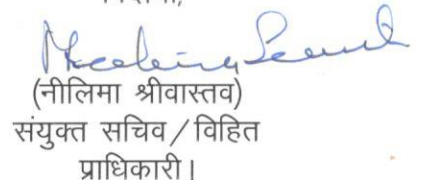 (नीलिमा श्रीवास्तव)
संयुक्त सचिव / विहित
प्राधिकारी।